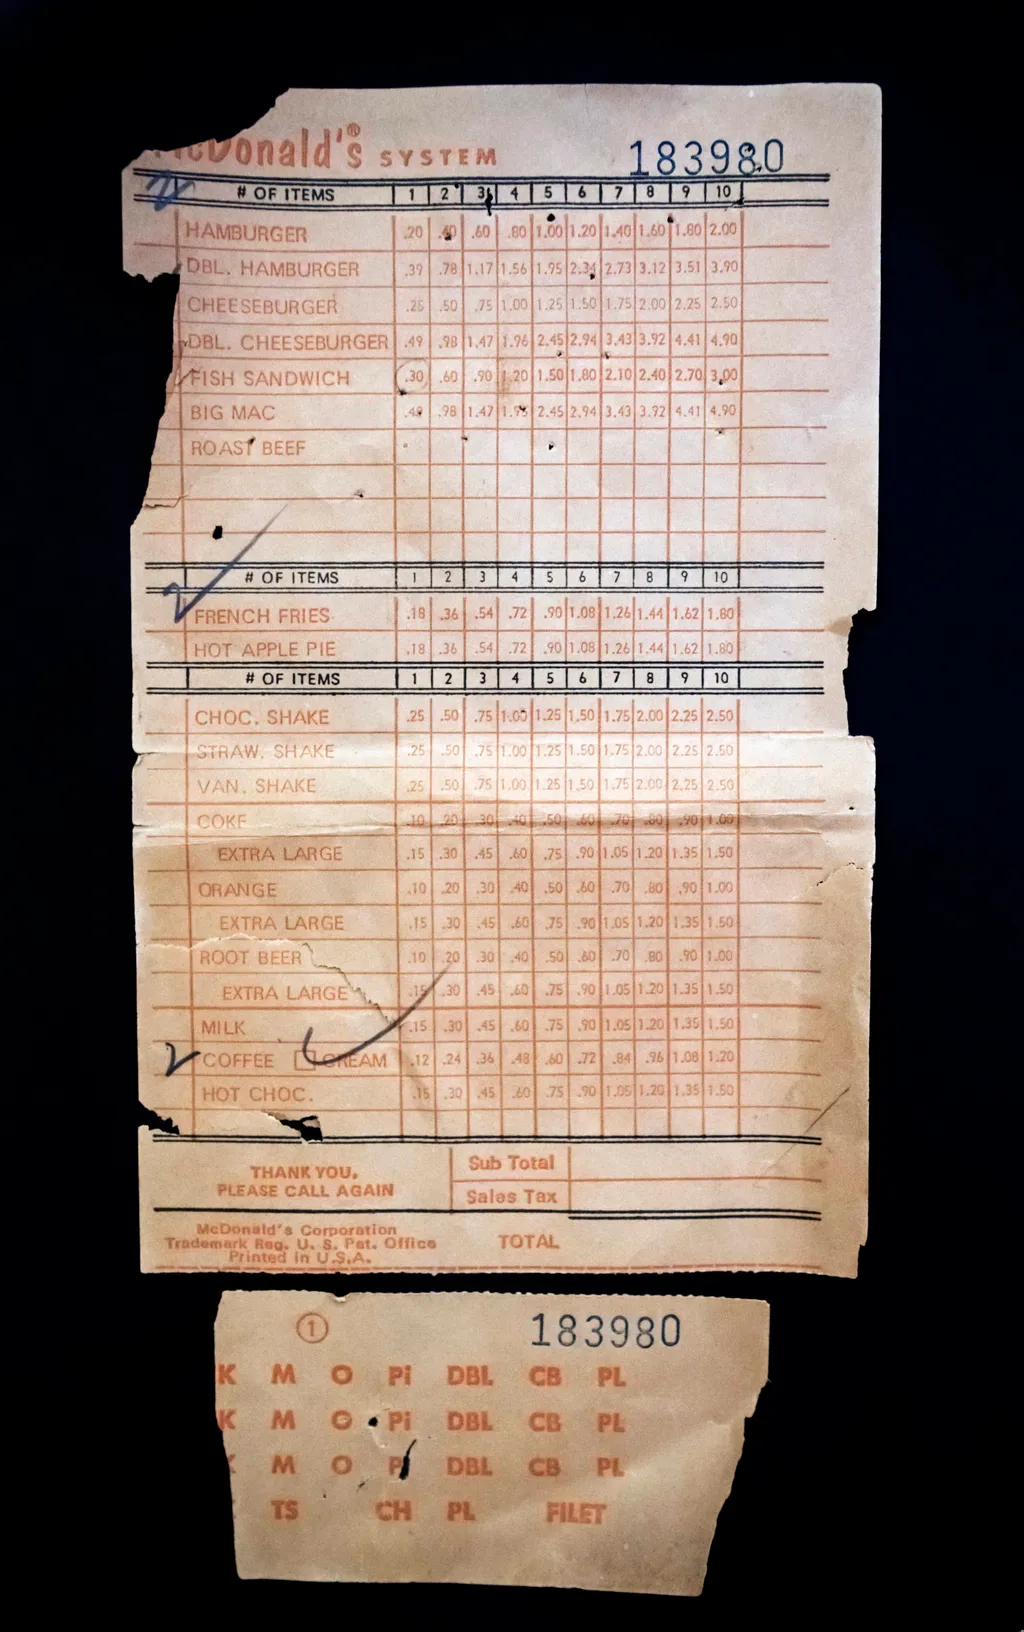 McDonald's® SYSTEM 183980
2 # OF ITEMS 1 2 3 4 5 6 7 8 9 10
HAMBURGER .20 .40 .60 .80 1.00 1.20 1.40 1.60 1.80 2.00
DBL. HAMBURGER .39 .78 1.17 1.56 1.95 2.34 2.73 3.12 3.51 3.90
CHEESEBURGER .25 .50 .75 1.00 1.25 1.50 1.75 2.00 2.25 2.50
DBL. CHEESEBURGER .49 .98 1.47 1.96 2.45 2.94 3.43 3.92 4.41 4.90
FISH SANDWICH .30 .60 .90 1.20 1.50 1.80 2.10 2.40 2.70 3.00
BIG MAC .49 .98 1.47 1.95 2.45 2.94 3.43 3.92 4.41 4.90
ROAST BEEF
# OF ITEMS 1 2 3 4 5 6 7 8 9 10
2 FRENCH FRIES .18 .36 .54 .72 .90 1.08 1.26 1.44 1.62 1.80
HOT APPLE PIE .18 .36 .54 .72 .90 1.08 1.26 1.44 1.62 1.80
# OF ITEMS 1 2 3 4 5 6 7 8 9 10
CHOC. SHAKE .25 .50 .75 1.00 1.25 1.50 1.75 2.00 2.25 2.50
STRAW. SHAKE .25 .50 .75 1.00 1.25 1.50 1.75 2.00 2.25 2.50
VAN. SHAKE .25 .50 .75 1.00 1.25 1.50 1.75 2.00 2.25 2.50
COKE .10 .20 .30 .40 .50 .60 .70 .80 .90 1.00
EXTRA LARGE .15 .30 .45 .60 .75 .90 1.05 1.20 1.35 1.50
ORANGE .10 .20 .30 .40 .50 .60 .70 .80 .90 1.00
EXTRA LARGE .15 .30 .45 .60 .75 .90 1.05 1.20 1.35 1.50
ROOT BEER .10 .20 .30 .40 .50 .60 .70 .80 .90 1.00
EXTRA LARGE .15 .30 .45 .60 .75 .90 1.05 1.20 1.35 1.50
MILK .15 .30 .45 .60 .75 .90 1.05 1.20 1.35 1.50
2 COFFEE CREAM .12 .24 .36 .48 .60 .72 .84 .96 1.08 1.20
HOT CHOC. .15 .30 .45 .60 .75 .90 1.05 1.20 1.35 1.50
THANK YOU,
PLEASE CALL AGAIN
Sub Total
Sales Tax
McDonald's Corporation
Trademark Reg. U. S. Pat. Office
Printed in U.S.A.
TOTAL
1 183980
K M O Pi DBL CB PL
K M O Pi DBL CB PL
K M O Pi DBL CB PL
TS CH PL FILET